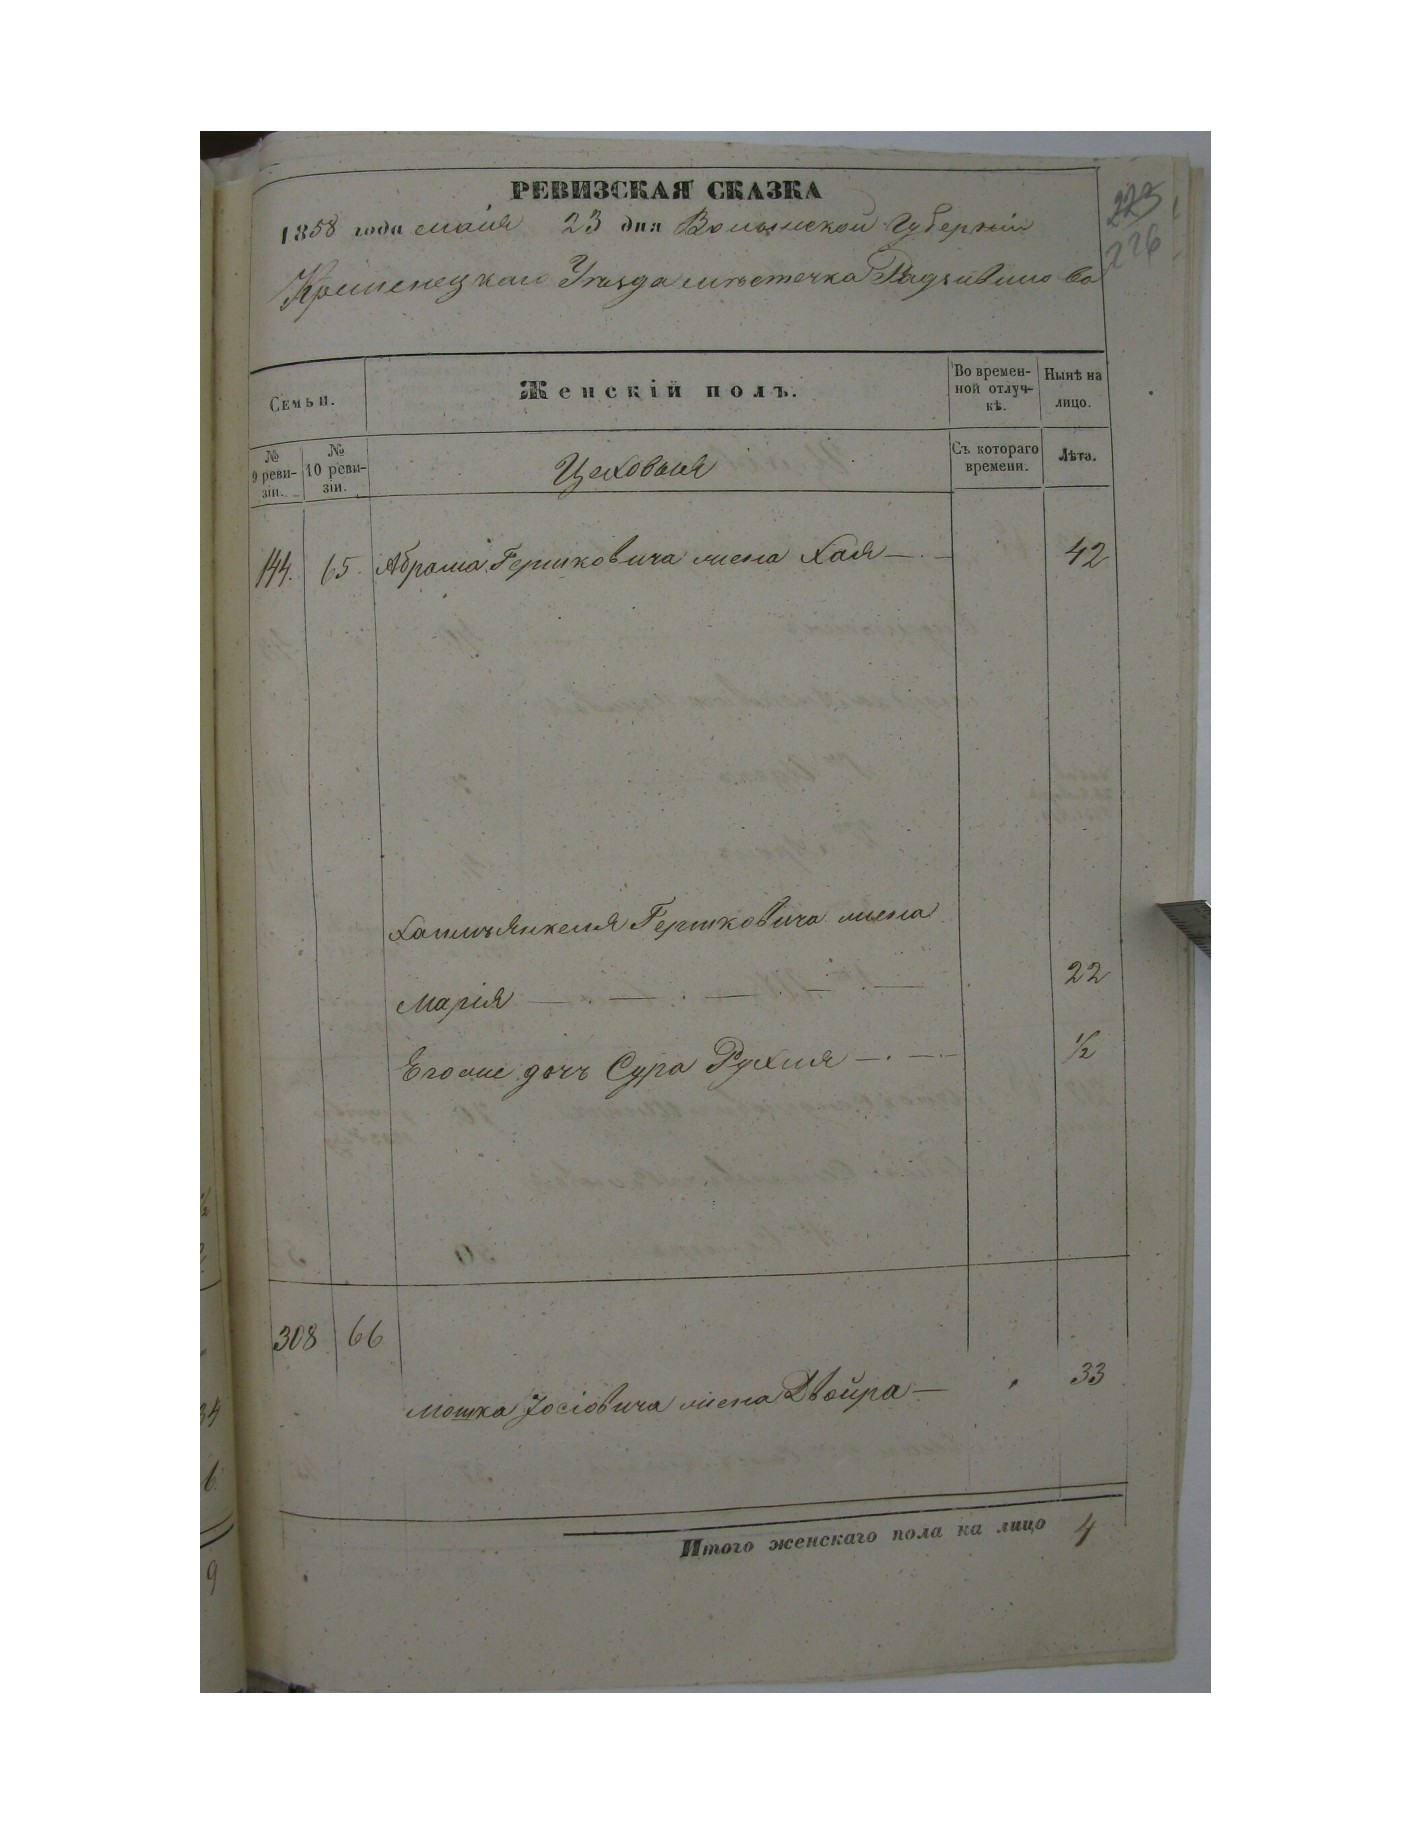 РЕВИЗСКАЯ СКАЗКА
1858 года маія 23 дня Волынской Губерніи
Кременецкаго Уѣзда мѣстечка Радзивилова
223
226
Семьи.
Женскій полъ.
Во времен-
ной отлуч-
кѣ.
Нынѣ на
лицо.
№
9 реви-
зіи.
№
10 реви-
зіи.
Цеховыя
Съ котораго
времени.
Лѣта.
144. 65. Абрама Гершковича жена Хая 42
Хаимъянкеля Гершковича жена
Марія 22
Егоже дочь Сура Рухля 1/2
308 66
Мошка Іосіовича жена Двойра 33
Итого женскаго пола на лицо 4
34
6
9